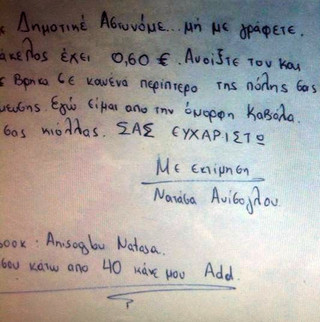 Δημοτικέ Αστυνόμε... μή με γράφετε.
άκελος έχει 0,60 €. Ανοίξτε τον και
βρηκα σε κανενα περίπτερο της πόλης σας
Εγώ είμαι απο την όμορφη Καβάλα.
σας κιόλας. ΣΑΣ ΕΥΧΑΡΙΣΤΩ
Με εκτιμηση
Νατάσα Ανίσογλου.
ook : Anisoglou Natasa.
σου κάτω απο 40 κάνε μου Add.